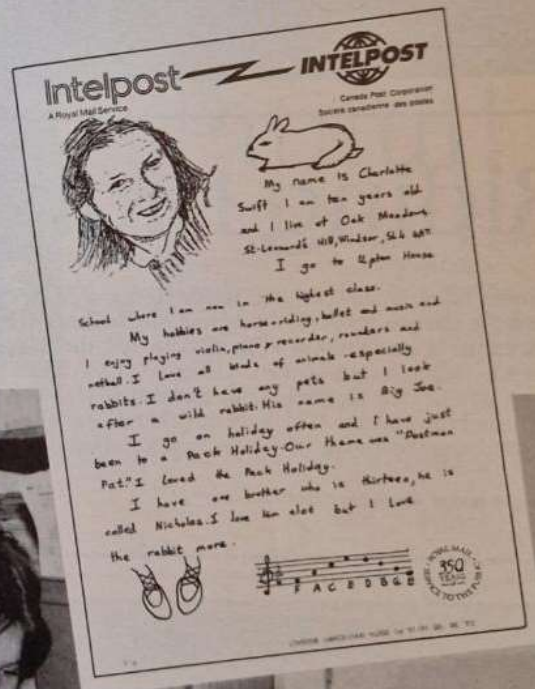 Intelpost
A Royal Mail Service
INTELPOST
Canada Post Corporation
Société canadienne des postes
My name is Charlotte
Swift I am ten years old
and I live at Oak Meadow,
St-Leonard's Hill, Windsor, SL4
I go to Upton House
School where I am now in the highest class.
My hobbies are horse-riding, ballet and music and
I enjoy playing violin, piano, recorder, rounders and
netball. I love all kinds of animals especially
rabbits. I don't have any pets but I look
after a wild rabbit. His name is Big Joe.
I go on holiday often and I have just
been to a Pack Holiday. Our theme was "Postman
Pat." I loved the Pack Holiday.
I have one brother who is thirteen, he is
called Nicholas. I love him alot but I love
the rabbit more.
F A C E D B G
ROYAL MAIL
350
YEARS
SERVICE TO THE PUBLIC